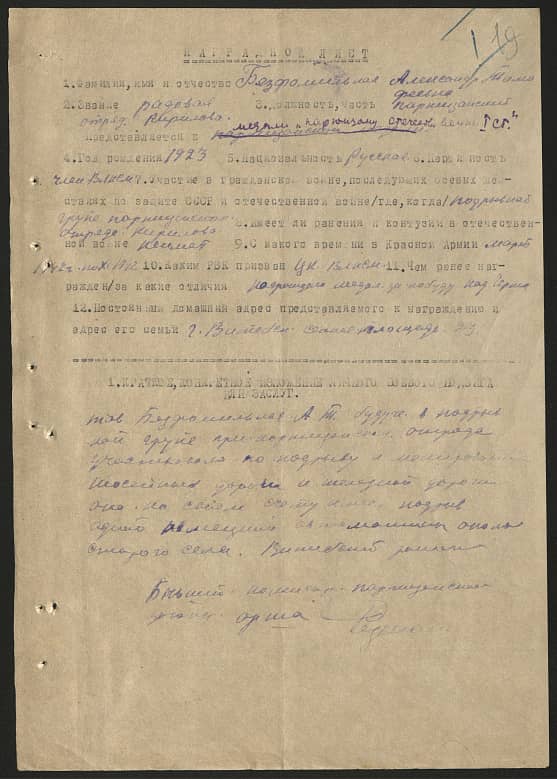 179
НАГРАДНОЙ ЛИСТ
1. Фамилия, имя и отчество Безфамильная Александр Тимо
феевна
2. Звание рядовая 3. Должность, часть партизанский
отряд Кирилова.
медали „партизану отечес войны I ст."
Представляется к
4. Год рождения 1923 5. Национальность Русская 6. Партийность
член ВЛКСМ 7. Участие в Гражданской войне, последующих боевых дей-
ствиях по защите СССР и отечественной войне /где, когда/ подрывной
групе партизанского
отряда Кирилова 8. Имеет ли ранения и контузии в отечествен-
ной войне Неимеет 9. С какого времени в Красной Армии март
10. Каким РВК призван ЦК ВЛКСМ 11. Чем ранее наг-
ражден /за какие отличия
12. Постоянный домашний адрес представляемого к награждению и
адрес его семьи г. Витебск площадь
1. КРАТКОЕ, КОНКРЕТНОЕ ИЗЛОЖЕНИЕ ЛИЧНОГО БОЕВОГО ПОДВИГА
ИЛИ ЗАСЛУГ.
тов Безфамильная А. Т. будучи в подрыв
ной групе при партизанск отряда
участвовала по подрыву и
дороги и железной дороги
она на своем счету имеет подрыв
одной немецкой автомашины около
старого села. Витебский района
Бывший партизанского
отряда